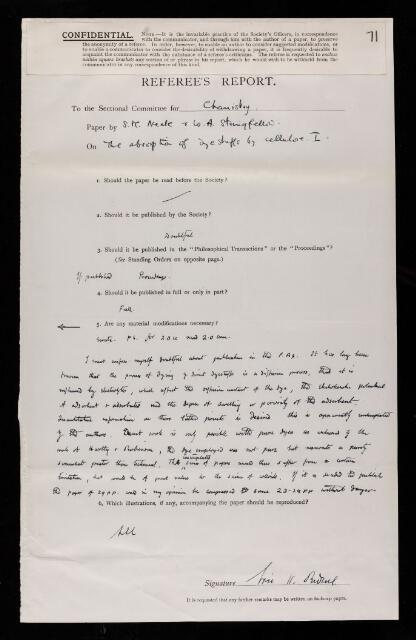 71
CONFIDENTIAL.
NOTE.—It is the invariable practice of the Society's Officers, in correspondence
with the communicator, and through him with the author of a paper, to preserve
the anonymity of a referee. In order, however, to enable an author to consider suggested modifications, or
to enable a communicator to consider the desirability of withdrawing a paper, it is frequently desirable to
acquaint the communicator with the substance of a referee's criticisms. The referee is requested to enclose
within square brackets any section of or phrase in his report, which he would wish to be withheld from the
communicator in any correspondence of this kind.
REFEREE'S REPORT.
To the Sectional Committee for Chemistry.
Paper by S.M. Neale & W.A. Stringfellow.
On The absorption of dyestuffs by cellulose I.
1. Should the paper be read before the Society?
2. Should it be published by the Society?
Doubtful
3. Should it be published in the "Philosophical Transactions" or the "Proceedings"?
(See Standing Orders on opposite page.)
If published Proceedings.
4. Should it be published in full or only in part?
Full
5. Are any material modifications necessary?
note. P6. for 2.0 cc read 2.0 cm.
I must confess myself doubtful about publication in the P.R.S. It has long been
known that the process of dyeing of direct dyestuffs is a diffusion process, that it is
influenced by electrolytes, which affect the diffusion constant of the dye, the electrokinetic potential
of adsorbent & adsorbate and the degree of swelling or porosity of the adsorbent.
Quantitative information on these latter points is desired this is apparently contemplated
by the authors. Exact work is only possible with pure dyes as witnessed by the
work of Hartley & Robinson, the dye employed was not pure but apparently a purity
somewhat greater than technical. The series of papers would thus suffer from a certain
limitation, but would be of great value to the science of colloids. If it is decided to publish
the paper of 29 pp. could in my opinion be compressed to some 23-24 pp without danger.
6. Which illustrations, if any, accompanying the paper should be reproduced?
All
Signature Eric K. Rideal
It is requested that any further remarks may be written on foolscap paper.